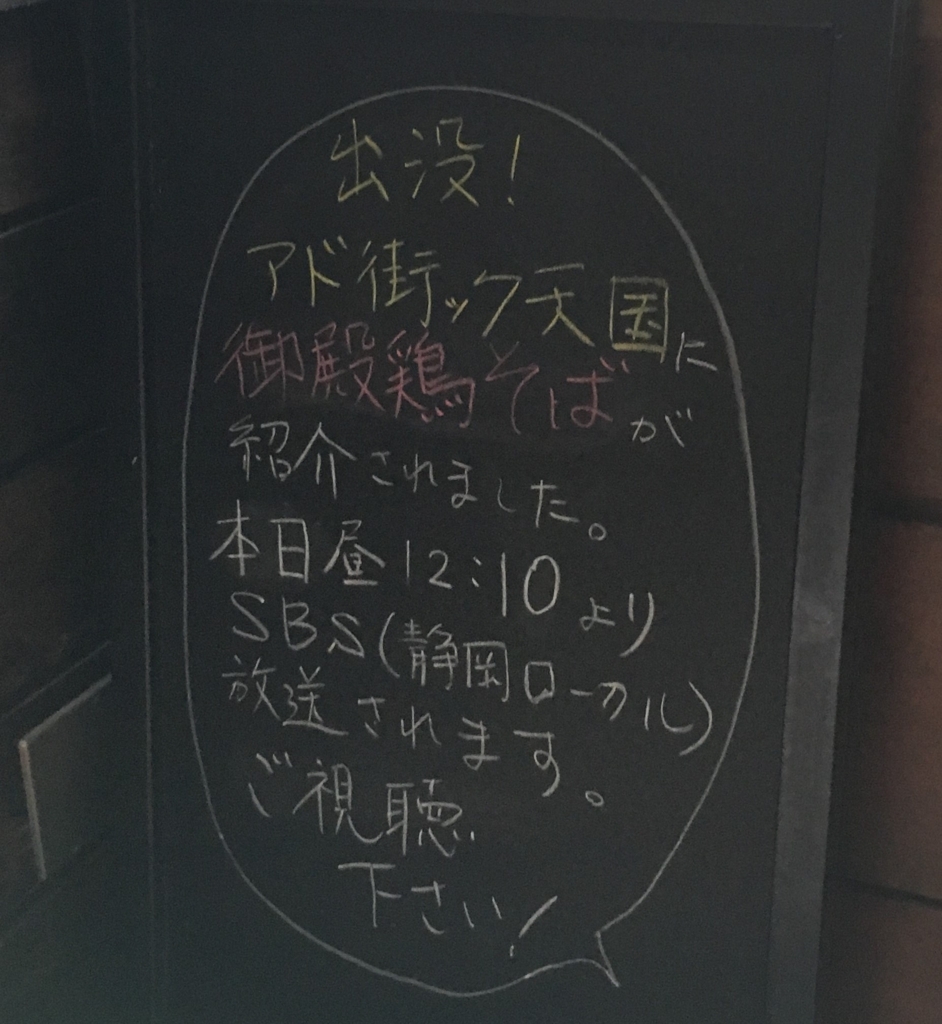 出没!
アド街ック天国に
御殿鶏そばが
紹介されました。
本日昼12:10より
SBS(静岡ローカル)
放送されます。
ご視聴
下さい!